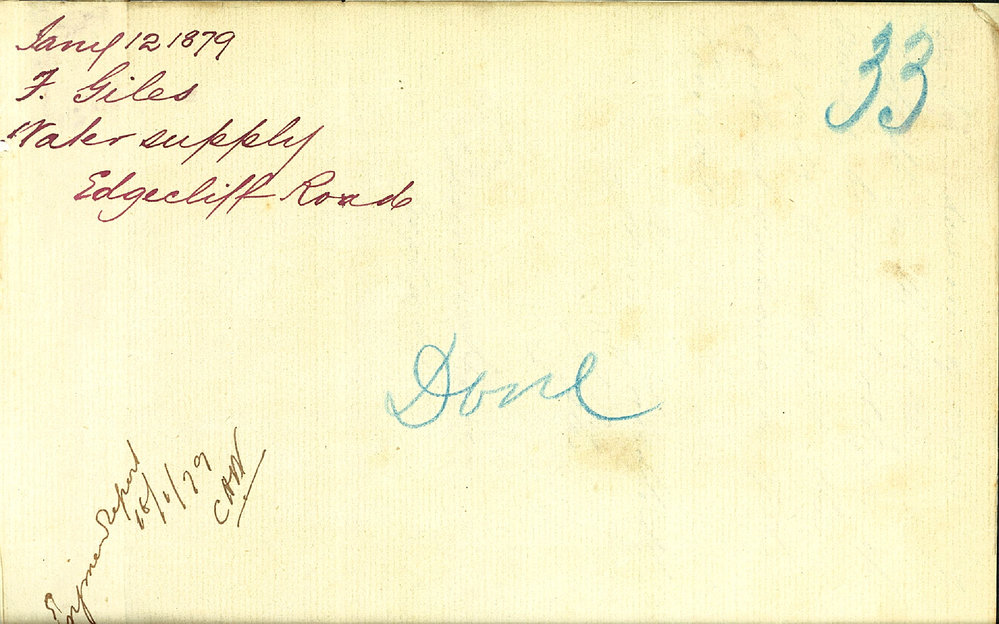 Jany 12 1879
33
F. Giles
Water supply
Edgecliff Road
Done
Report
18/1/79
CAW